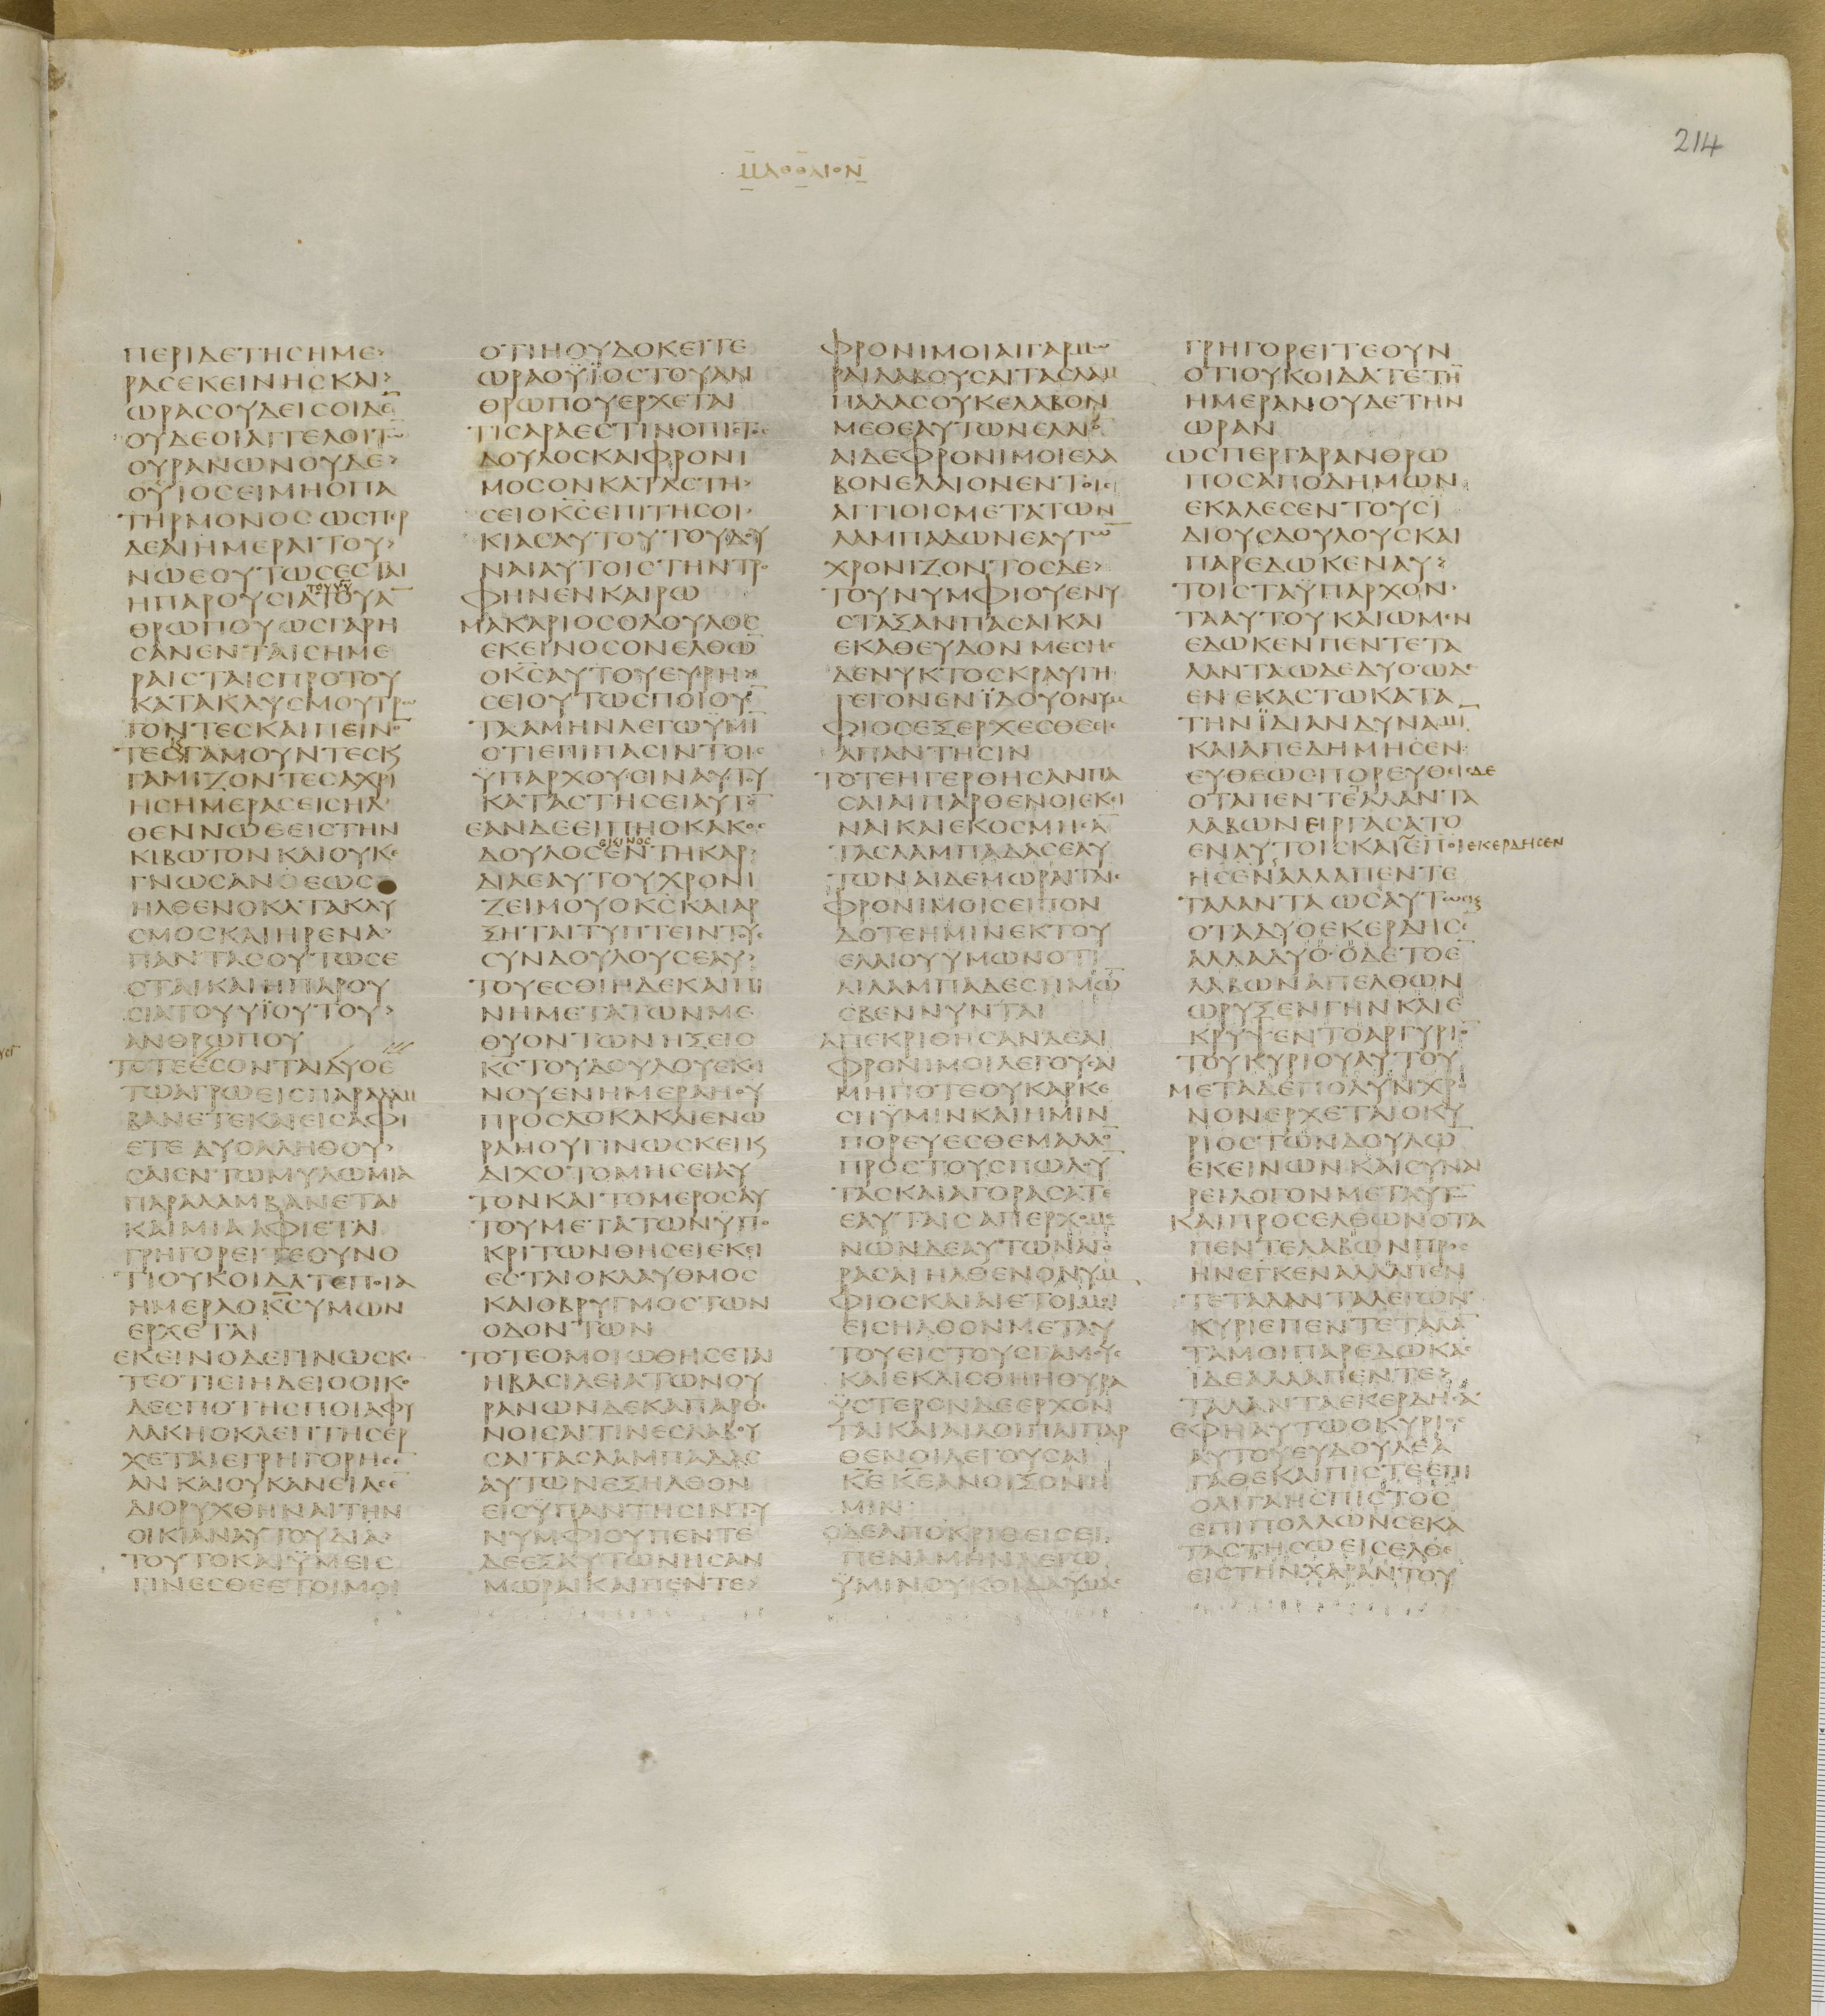 214
ΜΑΘΘΑΙΟΝ
ΠΕΡΙΔΕΤΗCΗΜΕ›
ΡΑCΕΚΕΙΝΗCΚΑΙ›
ΩΡΑCΟΥΔΕΙCΟΙΔΕ̅
ΟΥΔΕΟΙΑΓΓΕΛΟΙΤΩ̅
ΟΥΡΑΝΩΝΟΥΔΕ›
ΟΥΙΟCΕΙΜΗΟΠΑ
ΤΗΡΜΟΝΟCΩCΠΕΡ
ΔΕΑΙΗΜΕΡΑΙΤΟΥ›
ΝΩΕΟΥΤΩCΕCΤΑΙ
ΤΟΥΥΥ̅
ΗΠΑΡΟΥCΙΑΤΟΥΑ̅
ΘΡΩΠΟΥΩCΓΑΡΗ
CΑΝΕΝΤΑΙCΗΜΕ
ΡΑΙCΤΑΙCΠΡΟΤΟΥ
ΚΑΤΑΚΛΥCΜΟΥΤΡΩ
ΓΟΝΤΕCΚΑΙΠΕΙΝΟ̅
ΤΕCΓΑΜΟΥΝΤΕCΚ
ΓΑΜΙΖΟΝΤΕCΑΧΡΙ
ΗCΗΜΕΡΑCΕΙCΗΛ
ΘΕΝΝΩΕΕΙCΤΗΝ
ΚΙΒΩΤΟΝΚΑΙΟΥΚΕ
ΓΝΩCΑΝΕΩC
ΗΛΘΕΝΟΚΑΤΑΚΛΥ
CΜΟCΚΑΙΗΡΕΝΑ›
ΠΑΝΤΑCΟΥΤΩCΕ
CΤΑΙΚΑΙΗΠΑΡΟΥ
CΙΑΤΟΥΥΪΟΥΤΟΥ›
ΑΝΘΡΩΠΟΥ
ΤΟΤΕΕCΟΝΤΑΙΔΥΟΕ
ΤΩΑΓΡΩΕΙCΠΑΡΑΛΑΜ
ΒΑΝΕΤΕΚΑΙΕΙCΑΦΙ
ΕΤΕΔΥΟΑΛΗΘΟΥ›
CΑΙΕΝΤΩΜΥΛΩΜΙΑ
ΠΑΡΑΛΑΜΒΑΝΕΤΑΙ
ΚΑΙΜΙΑΑΦΙΕΤΑΙ
ΓΡΗΓΟΡΕΙΤΕΟΥΝΟ
ΤΙΟΥΚΟΙΔΑΤΕΠΟΙΑ
ΗΜΕΡΑΟΚ̅C̅ΥΜΩΝ
ΕΡΧΕΤΑΙ
ΕΚΕΙΝΟΔΕΓΙΝΩCΚΕ
ΤΕΟΤΙΕΙΗΔΕΙΟΟΙΚΟ
ΔΕCΠΟΤΗCΠΟΙΑΦΥ
ΛΑΚΗΟΚΛΕΠΤΗCΕΡ
ΧΕΤΑΙΕΓΡΗΓΟΡΗCΕ̅
ΑΝΚΑΙΟΥΚΑΝΕΙΑCΕ
ΔΙΟΡΥΧΘΗΝΑΙΤΗΝ
ΟΙΚΙΑΝΑΥΤΟΥΔΙΑ›
ΤΟΥΤΟΚΑΙΫΜΕΙC
ΓΙΝΕCΘΕΕΤΟΙΜΟΙ
ΟΤΙΗΟΥΔΟΚΕΙΤΕ
ΩΡΑΟΥΪΟCΤΟΥΑΝ
ΘΡΩΠΟΥΕΡΧΕΤΑΙ
ΤΙCΑΡΑΕCΤΙΝΟΠΙCΤΟC
ΔΟΥΛΟCΚΑΙΦΡΟΝΙ
ΜΟCΟΝΚΑΤΑCΤΗ›
CΕΙΟΚ̅C̅ΕΠΙΤΗCΟΙ
ΚΙΑCΑΥΤΟΥΤΟΥΔΟΥ
ΝΑΙΑΥΤΟΙCΤΗΝΤΡΟ
ΦΗΝΕΝΚΑΙΡΩ
ΜΑΚΑΡΙΟCΟΔΟΥΛΟC
ΕΚΕΙΝΟCΟΝΕΛΘΩ̅
ΟΚ̅C̅ΑΥΤΟΥΕΥΡΗ›
CΕΙΟΥΤΩCΠΟΙΟΥ̅
ΤΑΑΜΗΝΛΕΓΩΫΜΙ̅
ΟΤΙΕΠΙΠΑCΙΝΤΟΙC
ΫΠΑΡΧΟΥCΙΝΑΥΤΟΥ
ΚΑΤΑCΤΗCΕΙΑΥΤΟ̅
ΕΑΝΔΕΕΙΠΗΟΚΑΚΟC
ΕΚΙΝΟC
ΔΟΥΛΟCΕΝΤΗΚΑΡ›
ΔΙΑΕΑΥΤΟΥΧΡΟΝΙ
ΖΕΙΜΟΥΟΚ̅C̅ΚΑΙΑΡ
ΞΗΤΑΙΤΥΠΤΕΙΝΤΟΥC
CΥΝΔΟΥΛΟΥCΕΑΥ›
ΤΟΥΕCΘΙΗΔΕΚΑΙΠΙ
ΝΗΜΕΤΑΤΩΝΜΕ
ΘΥΟΝΤΩΝΗΞΕΙΟ
Κ̅C̅ΤΟΥΔΟΥΛΟΥΕΚΕΙ
ΝΟΥΕΝΗΜΕΡΑΗΟΥ
ΠΡΟCΔΟΚΑΚΑΙΕΝΩ
ΡΑΗΟΥΓΙΝΩCΚΕΙΚ
ΔΙΧΟΤΟΜΗCΕΙΑΥ
ΤΟΝΚΑΙΤΟΜΕΡΟCΑΥ
ΤΟΥΜΕΤΑΤΩΝΥΠΟ
ΚΡΙΤΩΝΘΗCΕΙΕΚΕΙ
ΕCΤΑΙΟΚΛΑΥΘΜΟC
ΚΑΙΟΒΡΥΓΜΟCΤΩΝ
ΟΔΟΝΤΩΝ
ΤΟΤΕΟΜΟΙΩΘΗCΕΤΑΙ
ΗΒΑCΙΛΕΙΑΤΩΝΟΥ
ΡΑΝΩΝΔΕΚΑΠΑΡΘΕ
ΝΟΙCΑΙΤΙΝΕCΛΑΒΟΥ
CΑΙΤΑCΛΑΜΠΑΔΑC
ΑΥΤΩΝΕΞΗΛΘΟΝ
ΕΙCΫΠΑΝΤΗCΙΝΤΟΥ
ΝΥΜΦΙΟΥΠΕΝΤΕ
ΔΕΕΞΑΥΤΩΝΗCΑΝ
ΜΩΡΑΙΚΑΙΠΕΝΤΕ›
ΦΡΟΝΙΜΟΙΑΙΓΑΡΜΩ
ΡΑΙΛΑΒΟΥCΑΙΤΑCΛΑΜ
ΠΑΔΑCΟΥΚΕΛΑΒΟΝ
ΜΕΘΕΑΥΤΩΝΕΛΑΙΟ̅
ΑΙΔΕΦΡΟΝΙΜΟΙΕΛΑ
ΒΟΝΕΛΑΙΟΝΕΝΤΟΙC
ΑΓΓΙΟΙCΜΕΤΑΤΩΝ
ΛΑΜΠΑΔΩΝΕΑΥΤΩ̅
ΧΡΟΝΙΖΟΝΤΟCΔΕ›
ΤΟΥΝΥΜΦΙΟΥΕΝΥ
CΤΑΞΑΝΠΑCΑΙΚΑΙ
ΕΚΑΘΕΥΔΟΝΜΕCΗC
ΔΕΝΥΚΤΟCΚΡΑΥΓΗ
ΓΕΓΟΝΕΝΪΔΟΥΟΝΥΜ
ΦΙΟCΕΞΕΡΧΕCΘΕΕΙC
ΑΠΑΝΤΗCΙΝ
ΤΟΤΕΗΓΕΡΘΗCΑΝΠΑ
CΑΙΑΙΠΑΡΘΕΝΟΙΕΚΕΙ
ΝΑΙΚΑΙΕΚΟCΜΗCΑ̅
ΤΑCΛΑΜΠΑΔΑCΕΑΥ
ΤΩΝΑΙΔΕΜΩΡΑΙΤΑΙC
ΦΡΟΝΙΜΟΙCΕΙΠΟΝ
ΔΟΤΕΗΜΙΝΕΚΤΟΥ
ΕΛΑΙΟΥΥΜΩΝΟΤΙ
ΑΙΛΑΜΠΑΔΕCΗΜΩ̅
CΒΕΝΝΥΝΤΑΙ
ΑΠΕΚΡΙΘΗCΑΝΔΕΑΙ
ΦΡΟΝΙΜΟΙΛΕΓΟΥCΑΙ
ΜΗΠΟΤΕΟΥΚΑΡΚΕ
CΗΫΜΙΝΚΑΙΗΜΙΝ
ΠΟΡΕΥΕCΘΕΜΑΛΛΟ̅
ΠΡΟCΤΟΥCΠΩΛΟΥ̅
ΤΑCΚΑΙΑΓΟΡΑCΑΤΕ
ΕΑΥΤΑΙCΑΠΕΡΧΟΜΕ
ΝΩΝΔΕΑΥΤΩΝΑΓΟ
ΡΑCΑΙΗΛΘΕΝΟΝΥΜ
ΦΙΟCΚΑΙΑΙΕΤΟΙΜΟΙ
ΕΙCΗΛΘΟΝΜΕΤΑΥ
ΤΟΥΕΙCΤΟΥCΓΑΜΟΥC
ΚΑΙΕΚΛΙCΘΗΗΘΥΡΑ
ΫCΤΕΡΟΝΔΕΕΡΧΟΝ
ΤΑΙΚΑΙΑΙΛΟΙΠΑΙΠΑΡ
ΘΕΝΟΙΛΕΓΟΥCΑΙ
Κ̅Ε̅Κ̅Ε̅ΑΝΟΙΞΟΝΗ
ΜΙΝ
ΟΔΕΑΠΟΚΡΙΘΕΙCΕΙ
ΠΕΝΑΜΗΝΛΕΓΩ
ΫΜΙΝΟΥΚΟΙΔΑΫΜΑC
ΓΡΗΓΟΡΕΙΤΕΟΥΝ
ΟΤΙΟΥΚΟΙΔΑΤΕΤΗ̅
ΗΜΕΡΑΝΟΥΔΕΤΗΝ
ΩΡΑΝ
ΩCΠΕΡΓΑΡΑΝΘΡΩ
ΠΟCΑΠΟΔΗΜΩΝ
ΕΚΑΛΕCΕΝΤΟΥCΪ
ΔΙΟΥCΔΟΥΛΟΥCΚΑΙ
ΠΑΡΕΔΩΚΕΝΑΥ›
ΤΟΙCΤΑΫΠΑΡΧΟΝ
ΤΑΑΥΤΟΥΚΑΙΩΜΕΝ
ΕΔΩΚΕΝΠΕΝΤΕΤΑ
ΛΑΝΤΑΩΔΕΔΥΟΩΔΕ
ΕΝΕΚΑCΤΩΚΑΤΑ
ΤΗΝΪΔΙΑΝΔΥΝΑΜΙ̅
ΚΑΙΑΠΕΔΗΜΗCΕΝ
ΕΥΘΕΩCΠΟΡΕΥΘΕΙCΔΕ
ΟΤΑΠΕΝΤΕΤΑΛΑΝΤΑ
ΛΑΒΩΝΕΙΡΓΑCΑΤΟ
ΕΝΑΥΤΟΙCΚΑΙΕΠΟΙ ΕΚΕΡΔΗCΕΝ
ΗCΕΝΑΛΛΑΠΕΝΤΕ
ΤΑΛΑΝΤΑΩCΑΥΤΩC
ΟΤΑΔΥΟΕΚΕΡΔΗCΕ̅
ΑΛΛΑΔΥΟΟΔΕΤΟΕ̅
ΛΑΒΩΝΑΠΕΛΘΩΝ
ΩΡΥΞΕΝΓΗΝΚΑΙΕ
ΚΡΥΨΕΝΤΟΑΡΓΥΡΙΟ̅
ΤΟΥΚΥΡΙΟΥΑΥΤΟΥ
ΜΕΤΑΔΕΠΟΛΥΝΧΡΟ
ΝΟΝΕΡΧΕΤΑΙΟΚΥ
ΡΙΟCΤΩΝΔΟΥΛΩ̅
ΕΚΕΙΝΩΝΚΑΙCΥΝΑΙ
ΡΕΙΛΟΓΟΝΜΕΤΑΥΤΩ̅
ΚΑΙΠΡΟCΕΛΘΩΝΟΤΑ
ΠΕΝΤΕΛΑΒΩΝΠΡΟC
ΗΝΕΓΚΕΝΑΛΛΑΠΕΝ
ΤΕΤΑΛΑΝΤΑΛΕΓΩΝ
ΚΥΡΙΕΠΕΝΤΕΤΑΛΑ̅
ΤΑΜΟΙΠΑΡΕΔΩΚΑC
ΪΔΕΑΛΛΑΠΕΝΤΕ›
ΤΑΛΑΝΤΑΕΚΕΡΔΗCΑ
ΕΦΗΑΥΤΩΟΚΥΡΙΟC
ΑΥΤΟΥΕΥΔΟΥΛΕΑ
ΓΑΘΕΚΑΙΠΙCΤΕΕΠΙ
ΟΛΙΓΑΗCΠΙCΤΟC
ΕΠΙΠΟΛΛΩΝCΕΚΑ
ΤΑCΤΗCΩΕΙCΕΛΘΕ
ΕΙCΤΗΝΧΑΡΑΝΤΟΥ